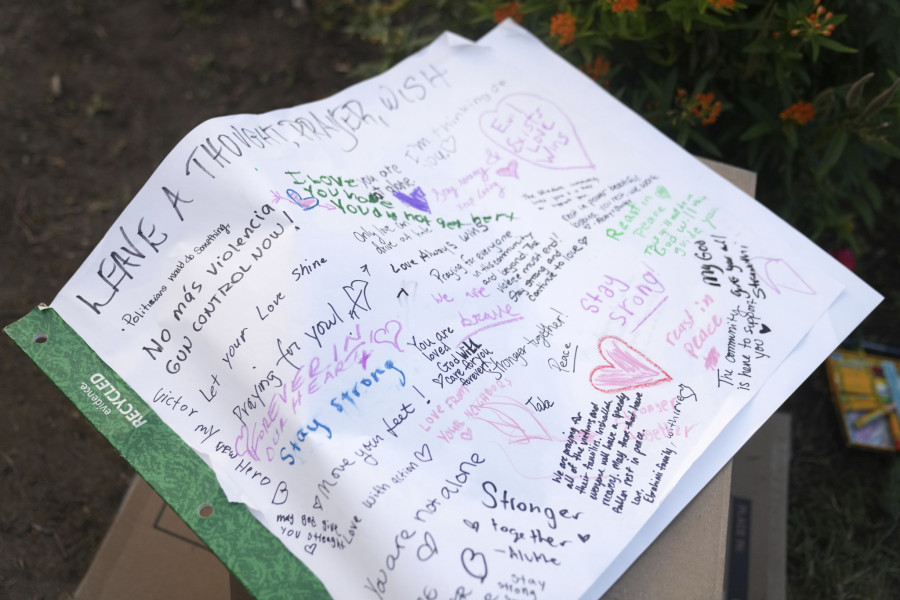 LEAVE A THOUGHT, PRAYER, WISH
I'm thinking of
you
Evil
Exists
Love
Wins
I LOVE
YOU
You are
not
alone
You do not
Stay strong &
keep loving
Politicians would do something.
No más violencia
GUN CONTROL NOW!
Let your Love Shine
Praying for you!
Victor
my
Hero
FOREVER IN
OUR HEARTS
Stay Strong
Move your feet!
Love with action
may god give
you strength
Only
Love Always wins
Praying for everyone
in this community
and beyond. The
violence must end!
Stay strong and
continue to love
We are
brave
You are
loved
God will
care for you
forever!
Stronger together!
Peace
LOVE FROM
YOUR NEIGHBORS
Rest in
peace
God will
guide you
Stay
srong!
rest in
Peace
My God
give you all
Strength!
The community
is here to support
you
We are praying for
all of the victims and
their families. Inshallah
everyone will have a speedy
recovery. May those that have
fallen rest in peace.
Love,
Ebrahimi family
You are not alone
Stronger
together
Stay
strong
RECYCLED
evidence.